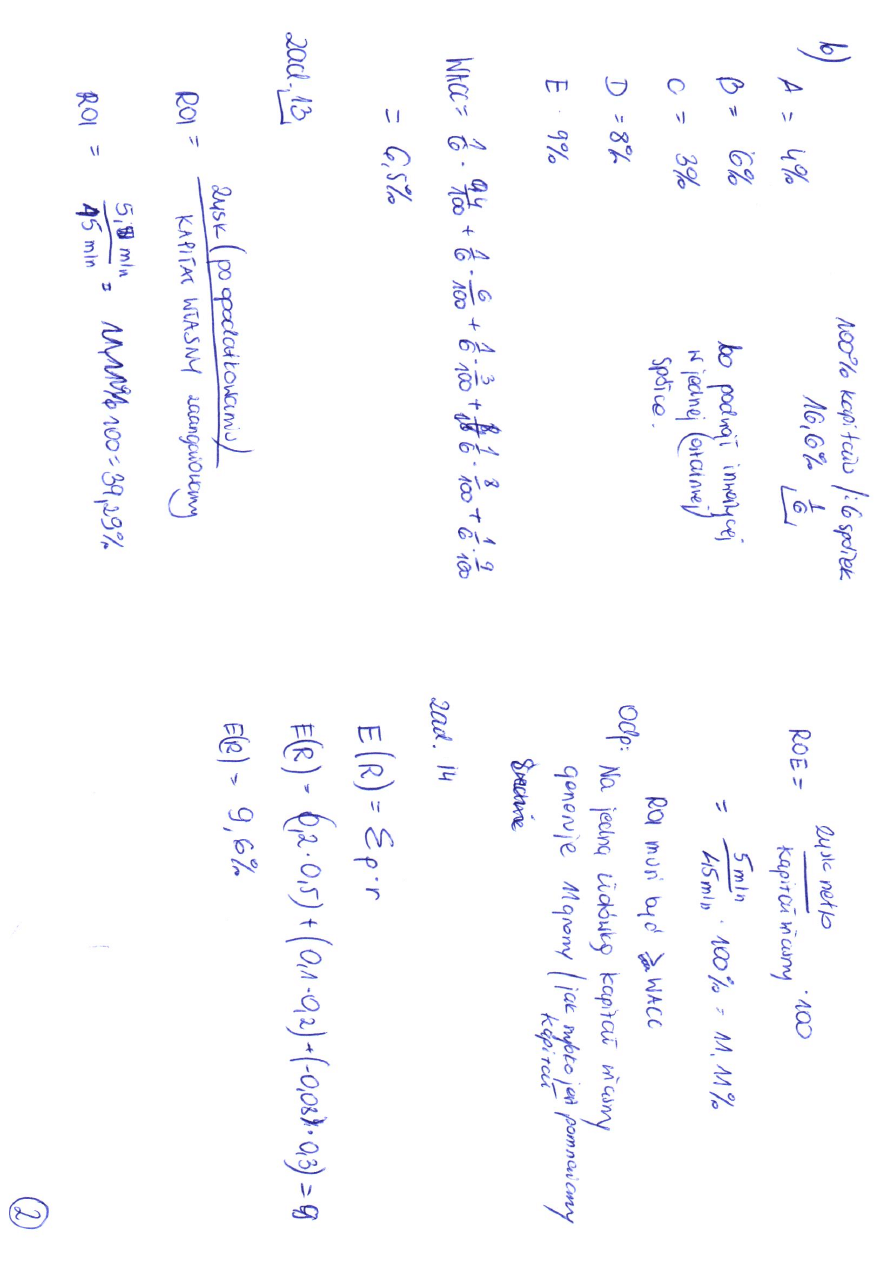 b)
100% kapitału /: 6 spółek
16,6% 1/6
A = 4%
B = 6%
C = 3%
D = 8%
E · 9%
bo podwójnie
w jednej (ostatniej)
spółce.
WACC = 1/6 · 4/100 + 1/6 · 6/100 + 1/6 · 3/100 + 1/6 · 8/100 + 1/6 · 9/100
= 6,5%
zad. 13
ROI = zysk (po opodatkowaniu) / KAPITAŁ WŁASNY zaangażowany
ROI = 5, mln / 45 mln = 100 = 39,29%
ROE = zysk netto / kapitał własny · 100
= 5 mln / 45 mln · 100% = 11,11%
ROI musi być WACC
Odp: Na jedną złotówkę kapitał własny
generuje 11 groszy / jak szybko jest pomnażany
kapitał
zad. 14
E(R) = Σ p·r
E(R) = (0,2 · 0,5) + (0,1 · 0,2) + (-0,08) · 0,3) = 9
E(R) = 9,6%
2